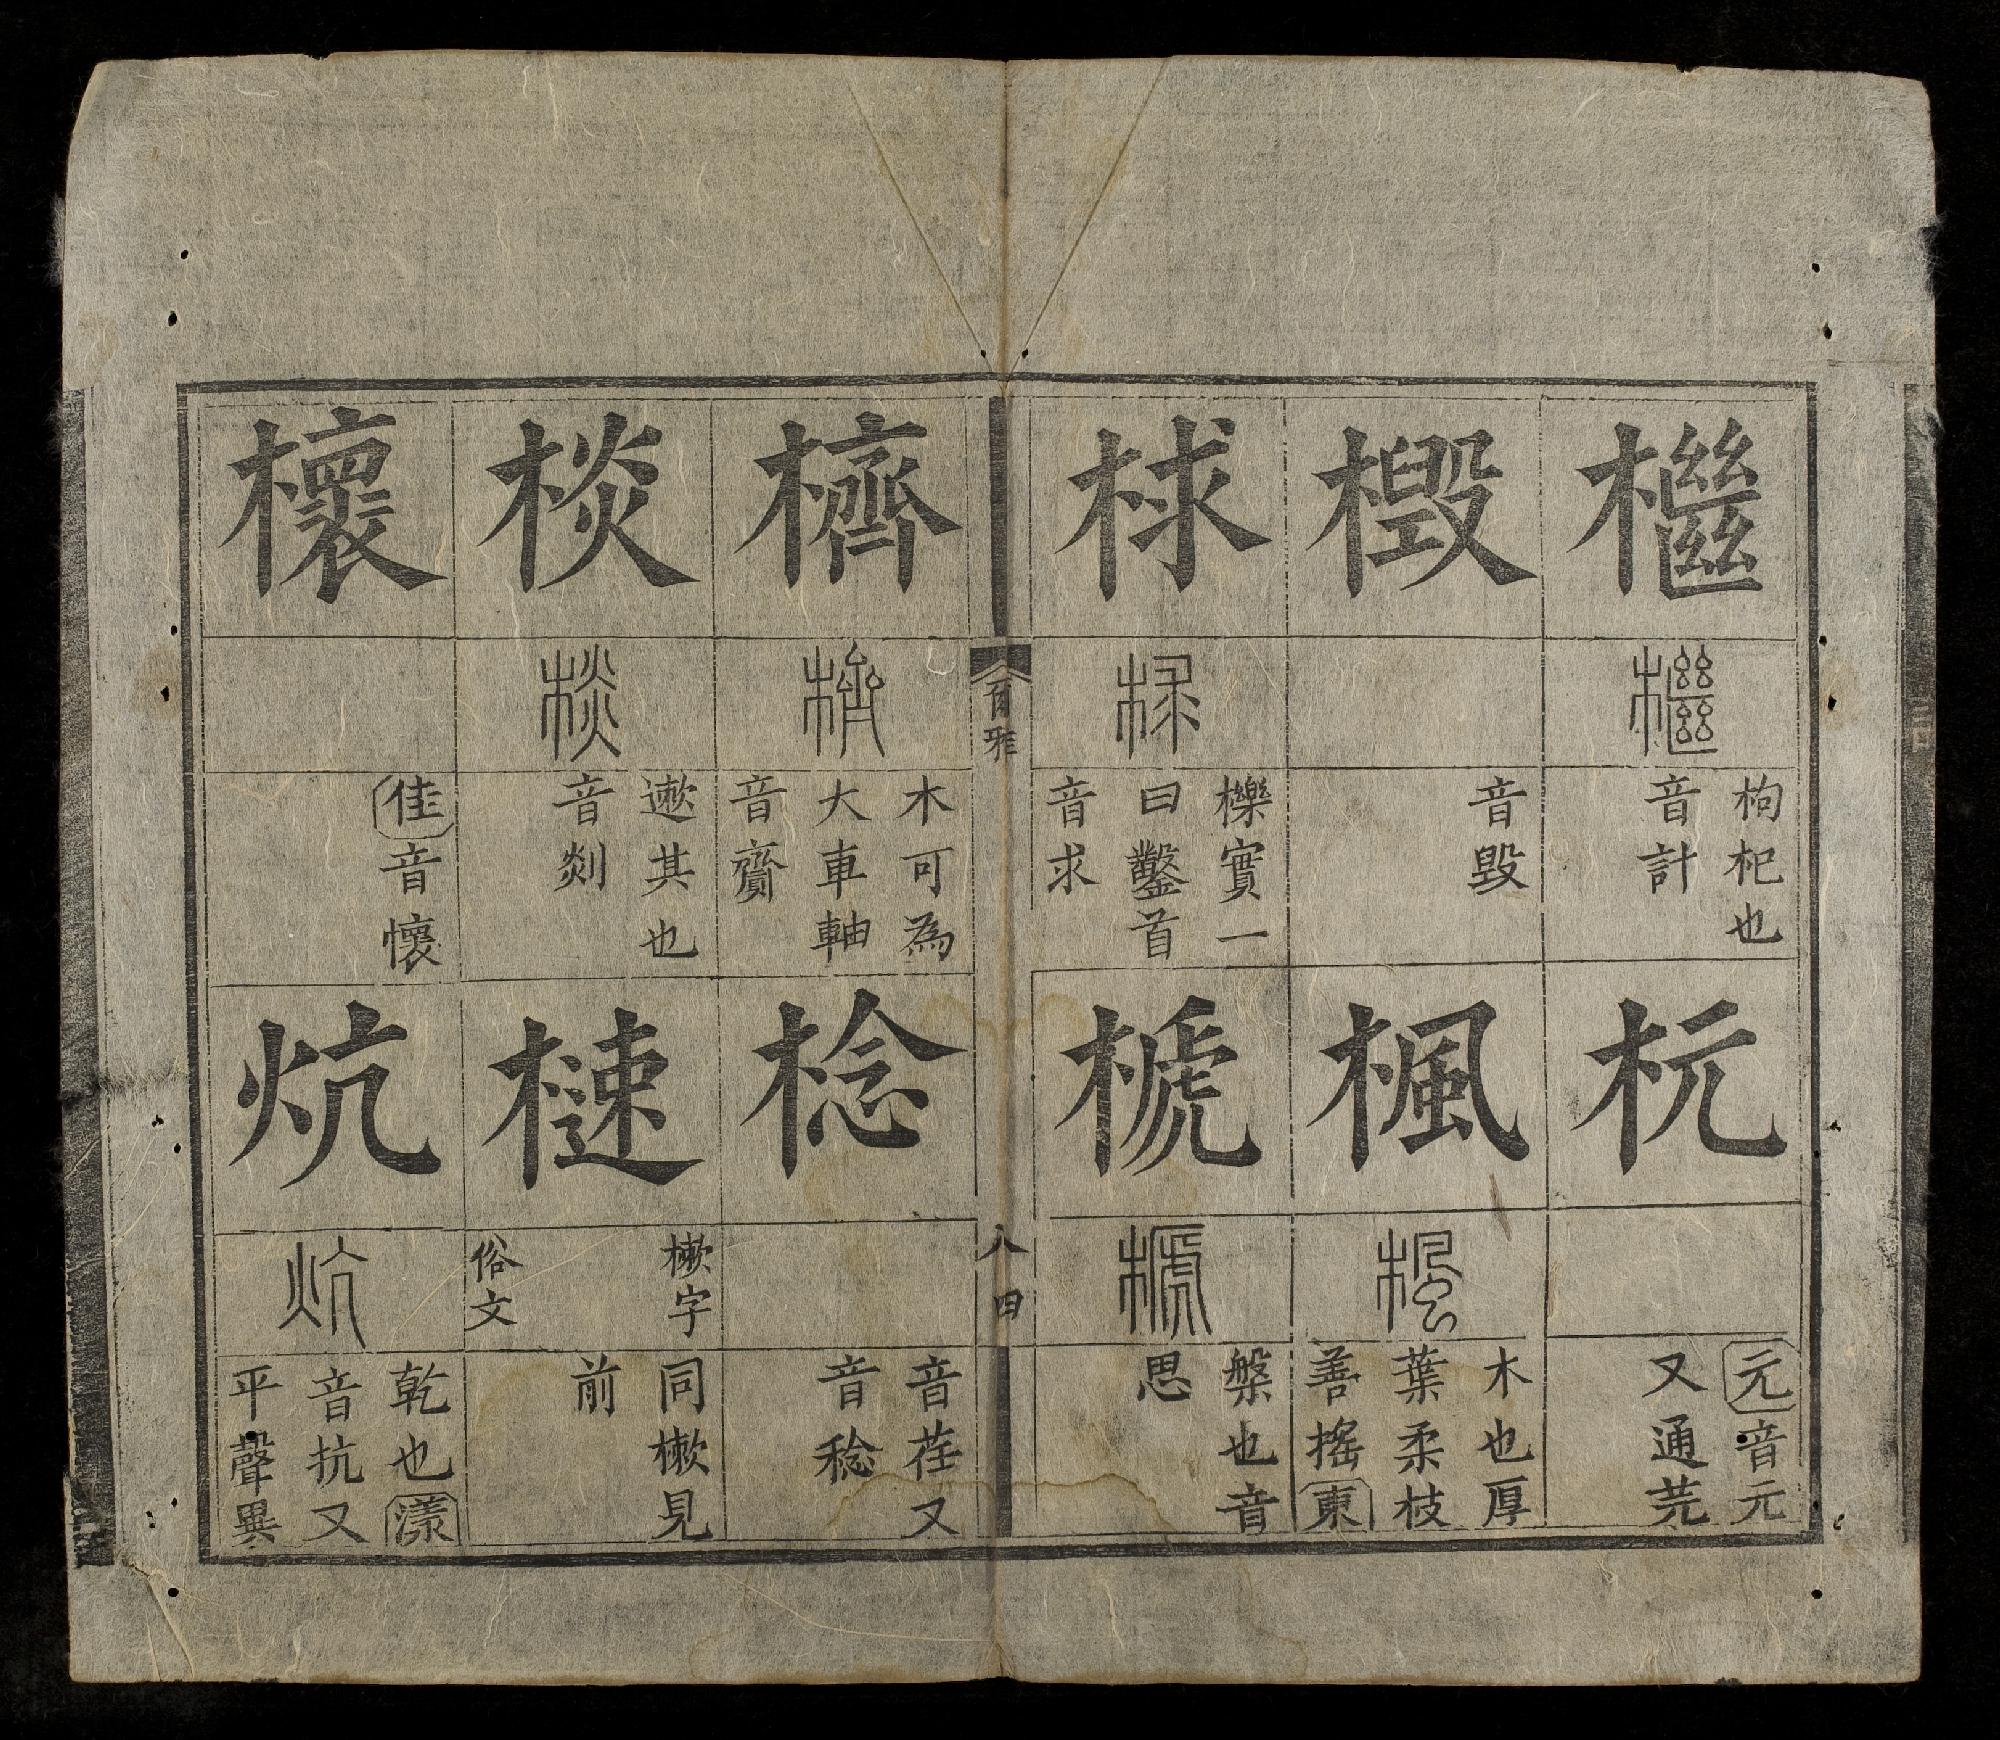 檵
枸杞也
音計
檓
音毀
梂
櫟實一
曰鑿首
音求
杬
元音元
又通芫
楓
木也厚
葉柔枝
善搖東
榹
槃也音
思
百雅
八四
櫅
木可為
大車軸
音齎
棪
遬其也
音剡
櫰
佳音懷
棯
音荏又
音稔
樕字
俗文
同樕見
前
炕
乾也漾
音抗又
平聲異